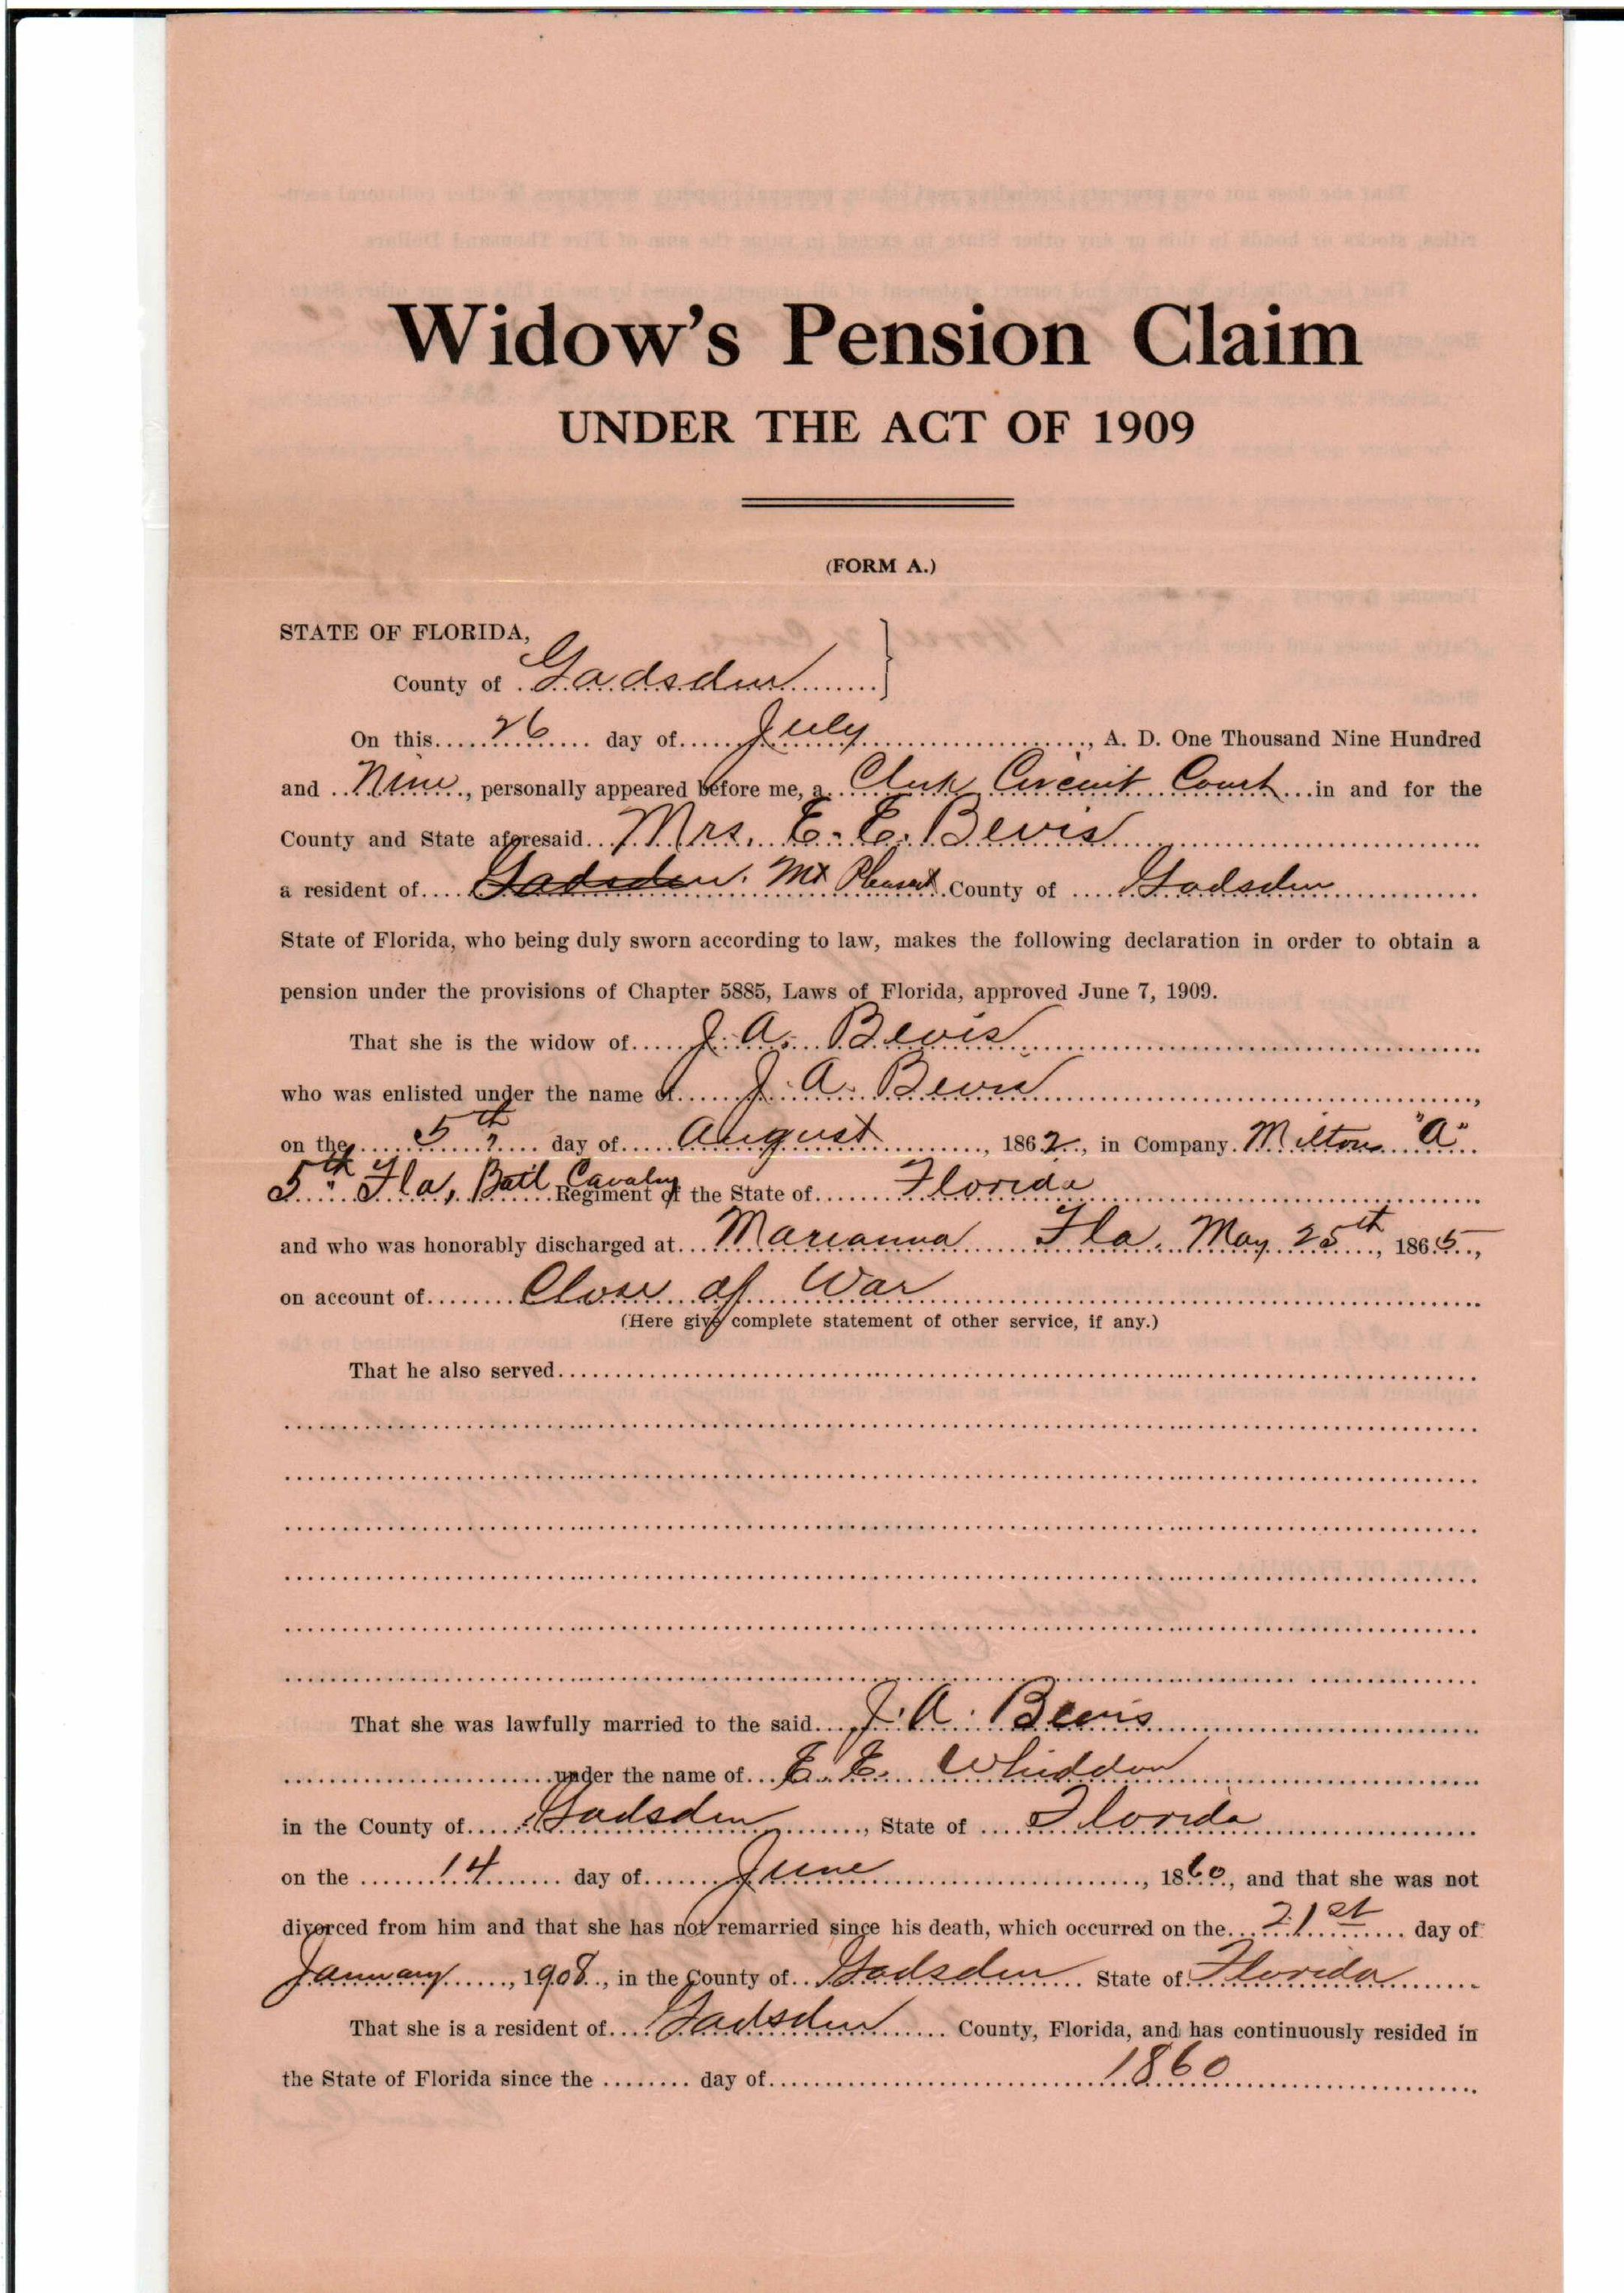 Widow's Pension Claim
UNDER THE ACT OF 1909
(FORM A.)
STATE OF FLORIDA,
County of Gadsden
On this 26 day of July, A. D. One Thousand Nine Hundred
and Nine, personally appeared before me, a Clerk Circuit Court in and for the
County and State aforesaid Mrs. E. E. Bevis
a resident of Gadsden. Mt Pleasant County of Gadsden
State of Florida, who being duly sworn according to law, makes the following declaration in order to obtain a
pension under the provisions of Chapter 5885, Laws of Florida, approved June 7, 1909.
That she is the widow of J. A. Bevis
who was enlisted under the name of J. A. Bevis,
on the 5th day of August, 1862, in Company Miltons "A"
5th Fla, Batl Cavalry Regiment of the State of Florida
and who was honorably discharged at Marianna Fla. May 25th, 1865,
on account of Close of War
(Here give complete statement of other service, if any.)
That he also served
That she was lawfully married to the said J. A. Bevis
under the name of E. E. Whiddon
in the County of Gadsden, State of Florida
on the 14 day of June, 1860, and that she was not
divorced from him and that she has not remarried since his death, which occurred on the 21st day of
January, 1908, in the County of Gadsden State of Florida
That she is a resident of Gadsden County, Florida, and has continuously resided in
the State of Florida since the day of 1860